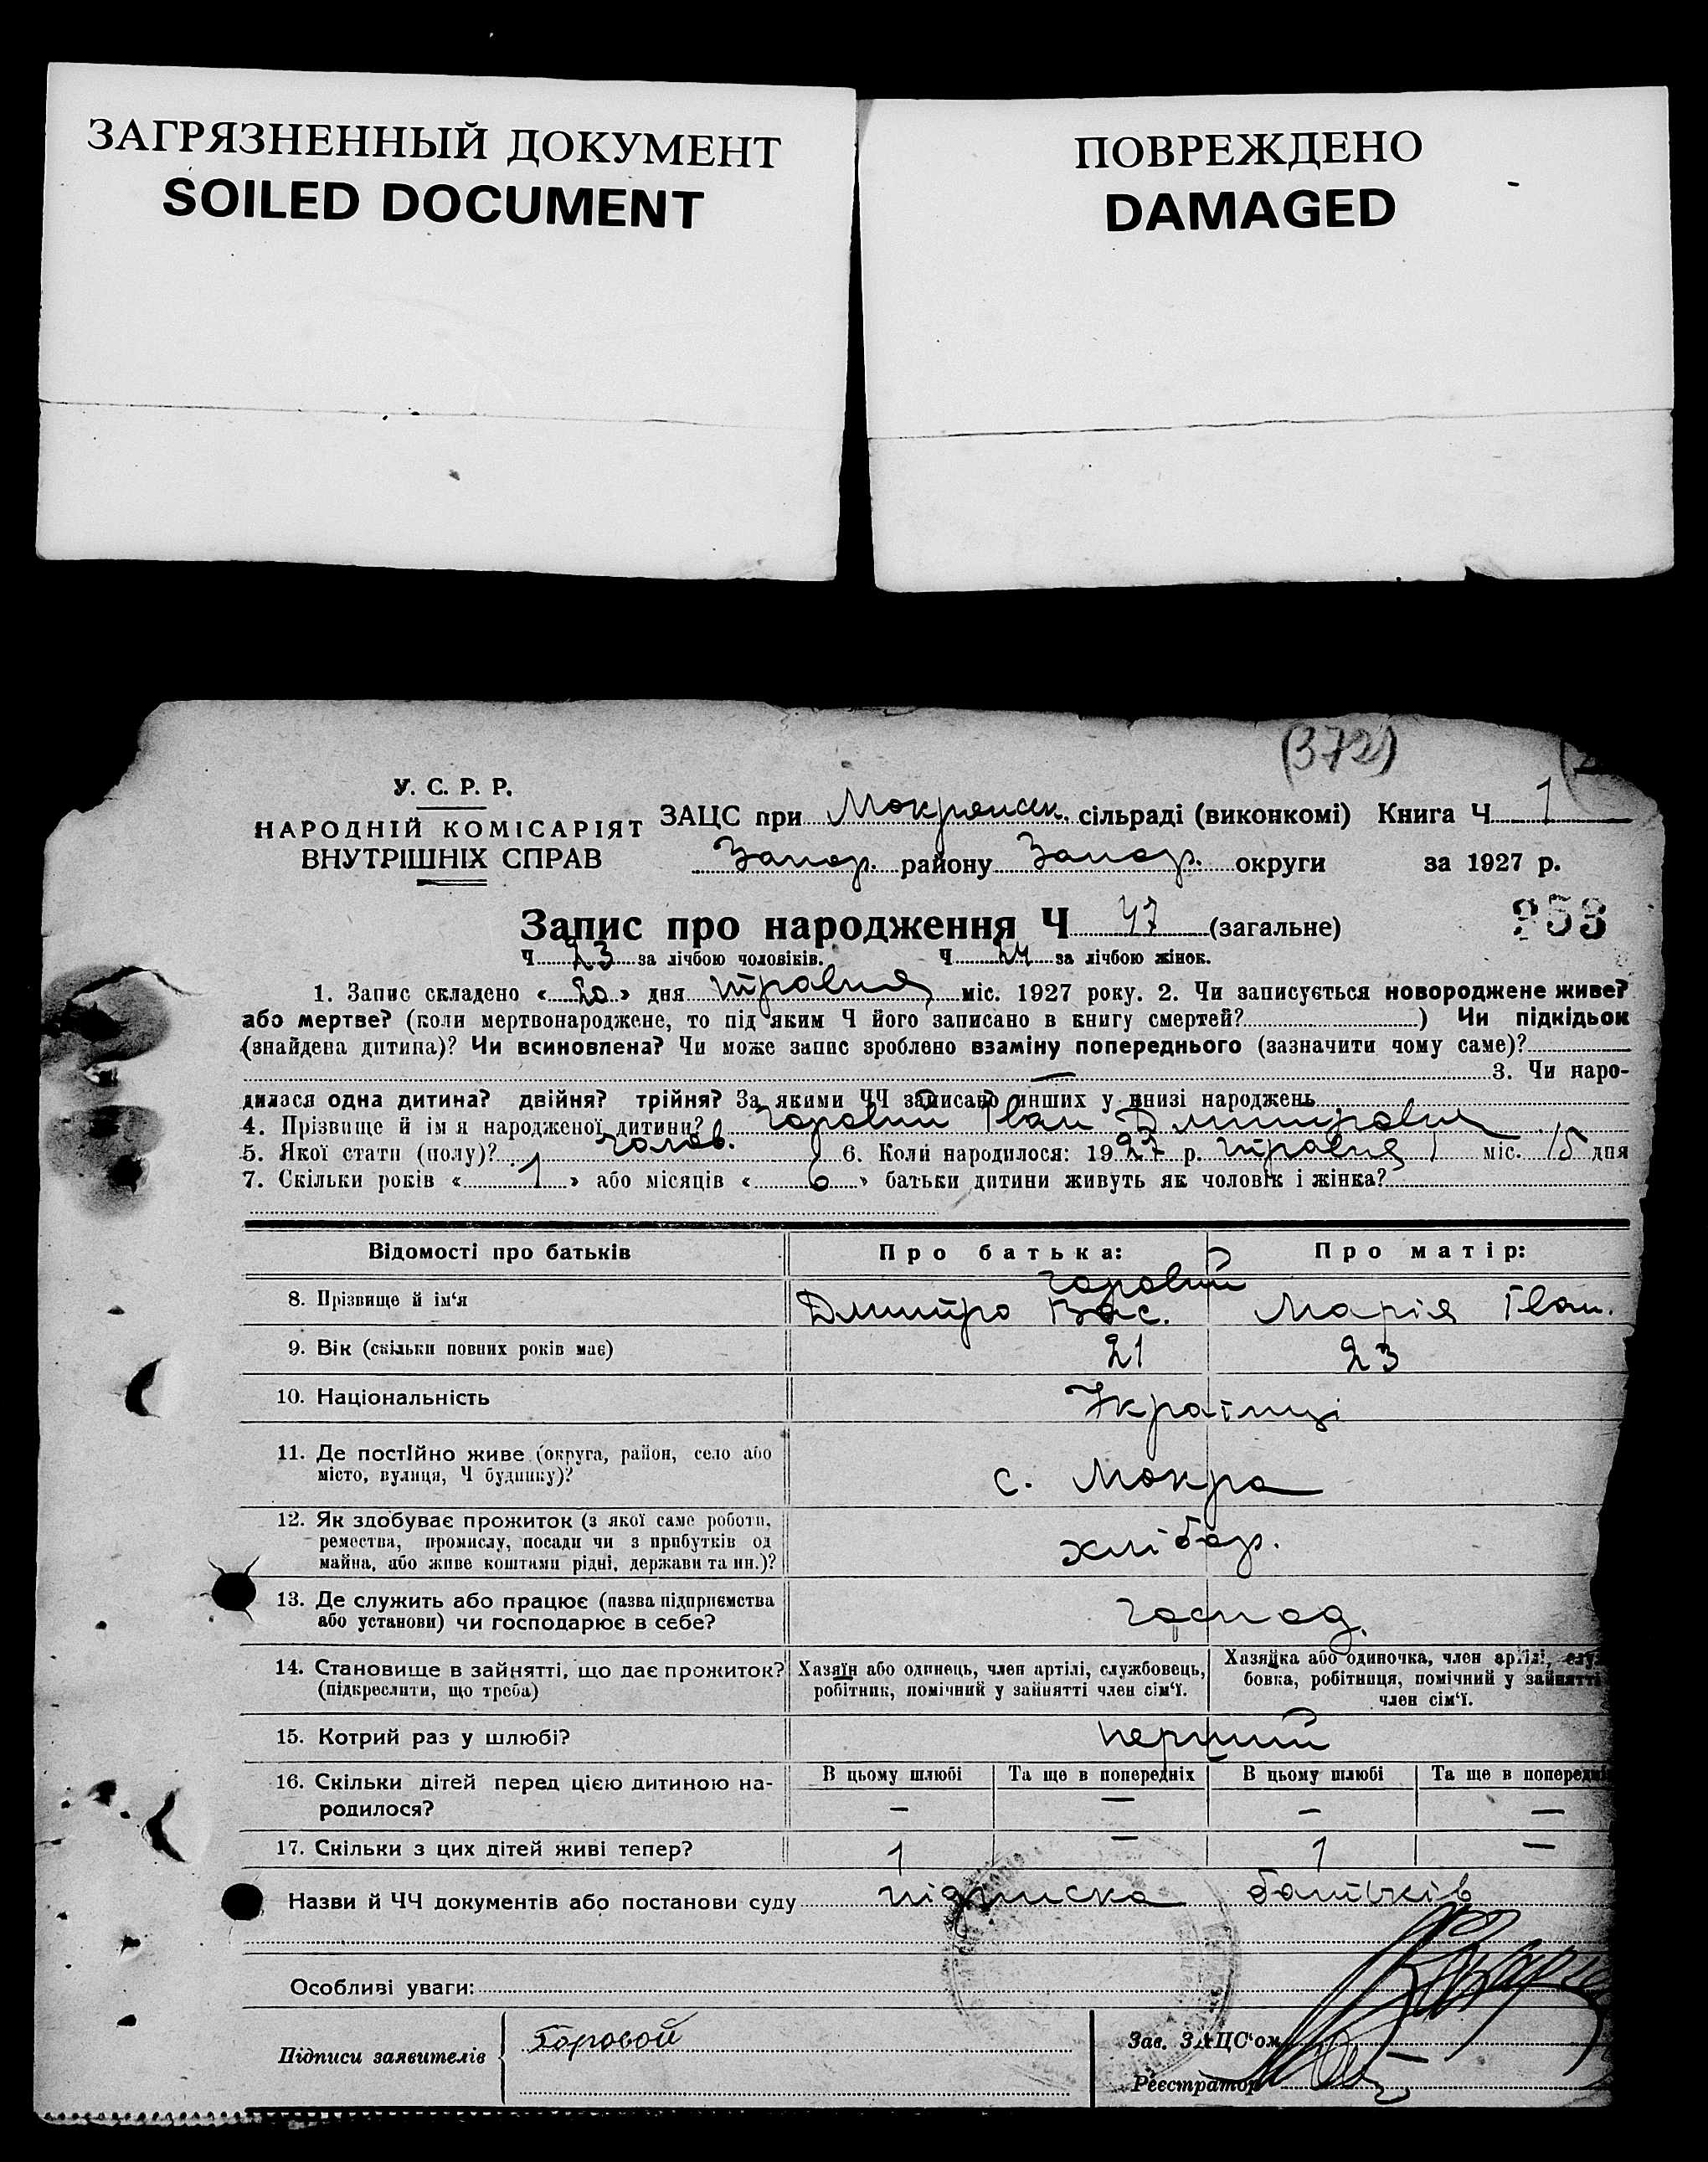 ЗАГРЯЗНЕННЫЙ ДОКУМЕНТ
SOILED DOCUMENT
ПОВРЕЖДЕНО
DAMAGED
(372)
У. С. Р. Р.
НАРОДНІЙ КОМІСАРІЯТ
ВНУТРІШНІХ СПРАВ
ЗАЦС при Мокрянск. сільраді (виконкомі) Книга Ч 1
Запор. району Запор. округи за 1927 р.
Запис про народження Ч 47 (загальне)
253
Ч 23 за лічбою чоловіків. Ч 24 за лічбою жінок.
1. Запис складено « 20 » дня травня міс. 1927 року. 2. Чи записується новороджене живе?
або мертве? (коли мертвонароджене, то під яким Ч його записано в книгу смертей? ) Чи підкідьок
(знайдена дитина)? Чи всиновлена? Чи може запис зроблено взаміну попереднього (зазначити чому саме)?
— 3. Чи наро-
дилася одна дитина? двійня? трійня? За якими ЧЧ записано инших у книзі народжень
4. Прізвище й ім я народженої дитини? Горовий Іван Дмитрович
5. Якої стати (полу)? чолов. 6. Коли народилося: 1927 р. травня міс. 15 дня
7. Скільки років « 1 » або місяців « 6 » батьки дитини живуть як чоловік і жінка?
Відомості про батьків Про батька: Про матір:
Горовий
8. Прізвище й ім'я Дмитро Вас. Марія Іван.
9. Вік (скільки повних років має) 21 23
10. Національність Українці
11. Де постійно живе (округа, район, село або
місто, вулиця, Ч будинку)? с. Мокра
12. Як здобуває прожиток (з якої саме роботи,
ремества, промислу, посади чи з прибутків од
майна, або живе коштами рідні, держави та ин.)? хлібор.
13. Де служить або працює (назва підприємства
або установи) чи господарює в себе? господ.
14. Становище в зайнятті, що дає прожиток?
(підкреслити, що треба)
Хазяїн або одинець, член артілі, службовець,
робітник, помічний у зайнятті член сім'ї.
Хазяйка або одиночка, член артілі, служ
бовка, робітниця, помічний у зайнятті
член сім'ї.
15. Котрий раз у шлюбі? перший
16. Скільки дітей перед цією дитиною на-
родилося?
В цьому шлюбі Та ще в попередніх В цьому шлюбі Та ще в попередніх
— — — —
17. Скільки з цих дітей живі тепер? 1 — 1 —
Назви й ЧЧ документів або постанови суду підписка батьків
Особливі уваги:
Підписи заявителів Горовой
Зав. ЗАЦС'ом
Реєстратор